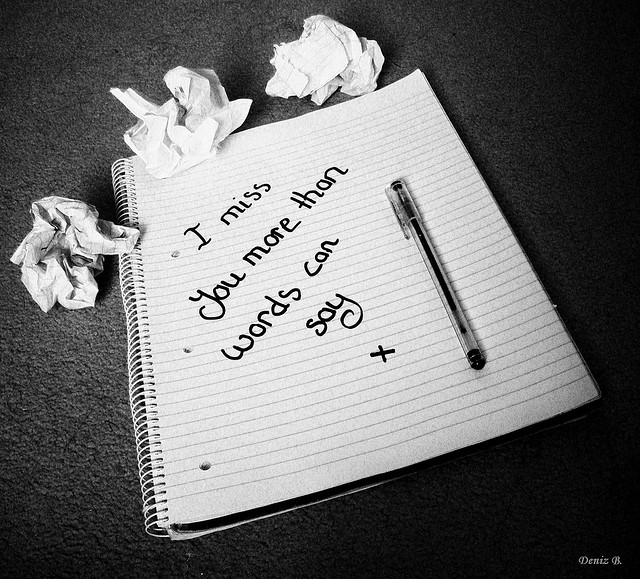 I miss
You more than
words can
say
+
Deniz B.